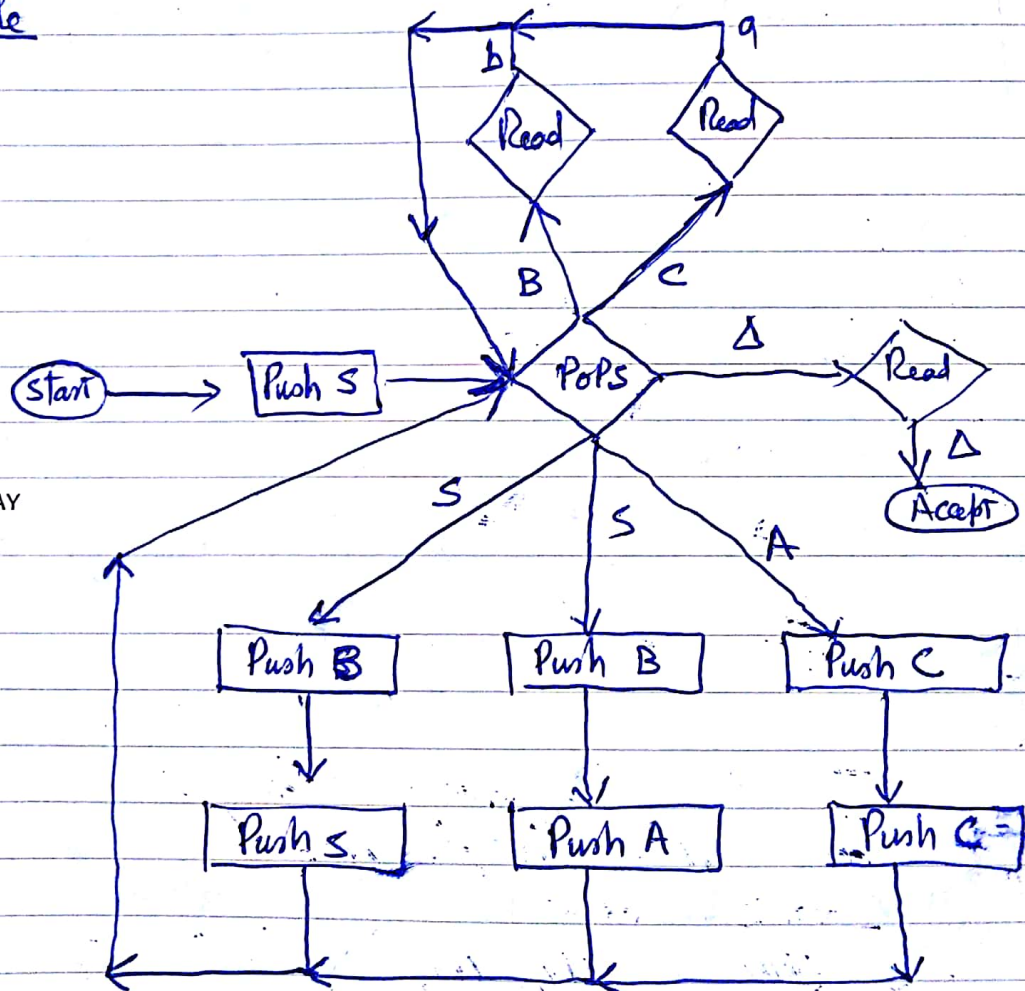 le
a
b
Read
Read
B
C
Δ
Start
Push S
PoPS
Read
Δ
AY
S
S
A
Accept
Push B
Push B
Push C
Push S
Push A
Push C